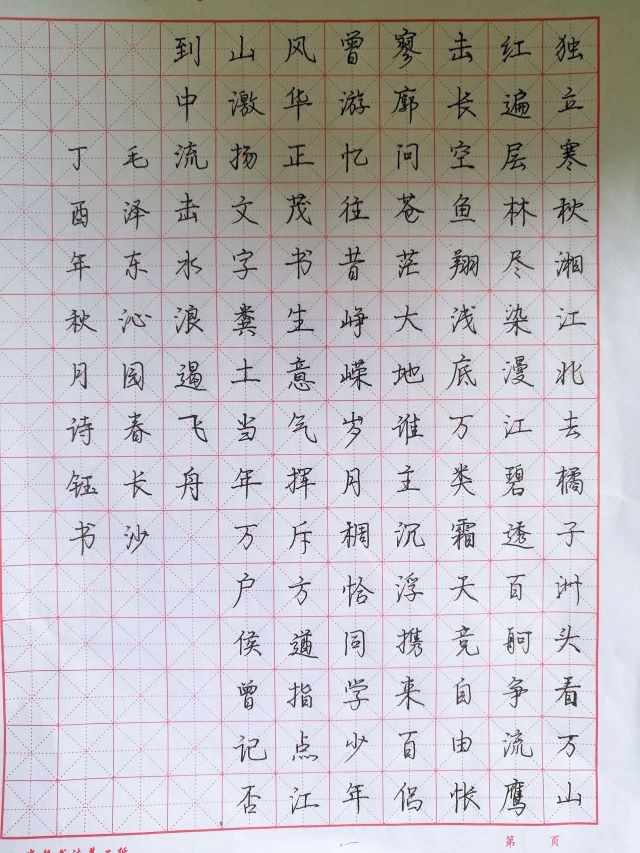 独立寒秋湘江北去橘子洲头看万山
红遍层林尽染漫江碧透百舸争流鹰
击长空鱼翔浅底万类霜天竞自由怅
寥廓问苍茫大地谁主沉浮携来百侣
曾游忆往昔峥嵘岁月稠恰同学少年
风华正茂书生意气挥斥方遒指点江
山激扬文字粪土当年万户侯曾记否
到中流击水浪遏飞舟
毛泽东沁园春长沙
丁酉年秋月诗钰书
第 页